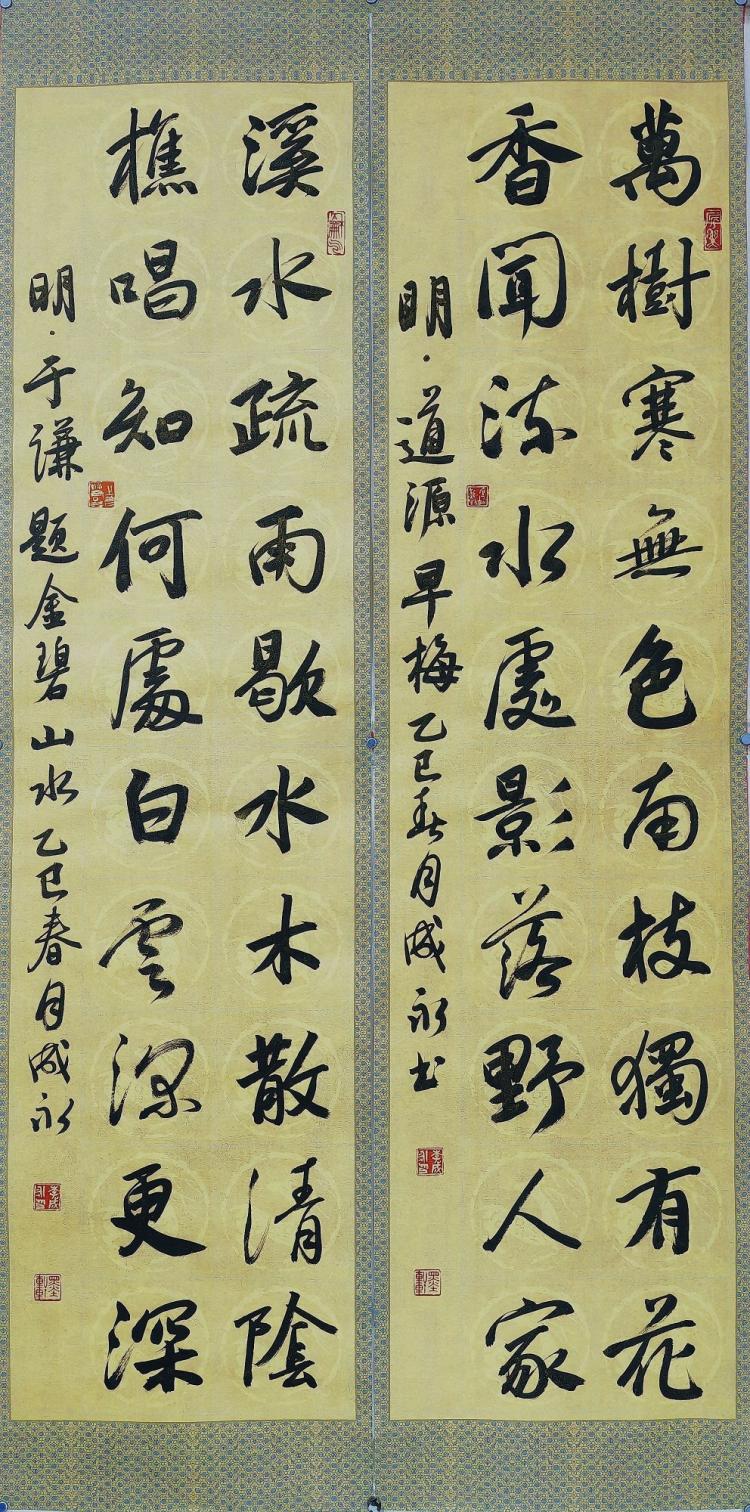 萬樹寒無色南枝獨有花
香聞流水處影落野人家
明·道源早梅乙巳春月成永书
溪水疏雨歇水木散清陰
樵唱知何處白雲深更深
明·于謙題金碧山水乙巳春月成永